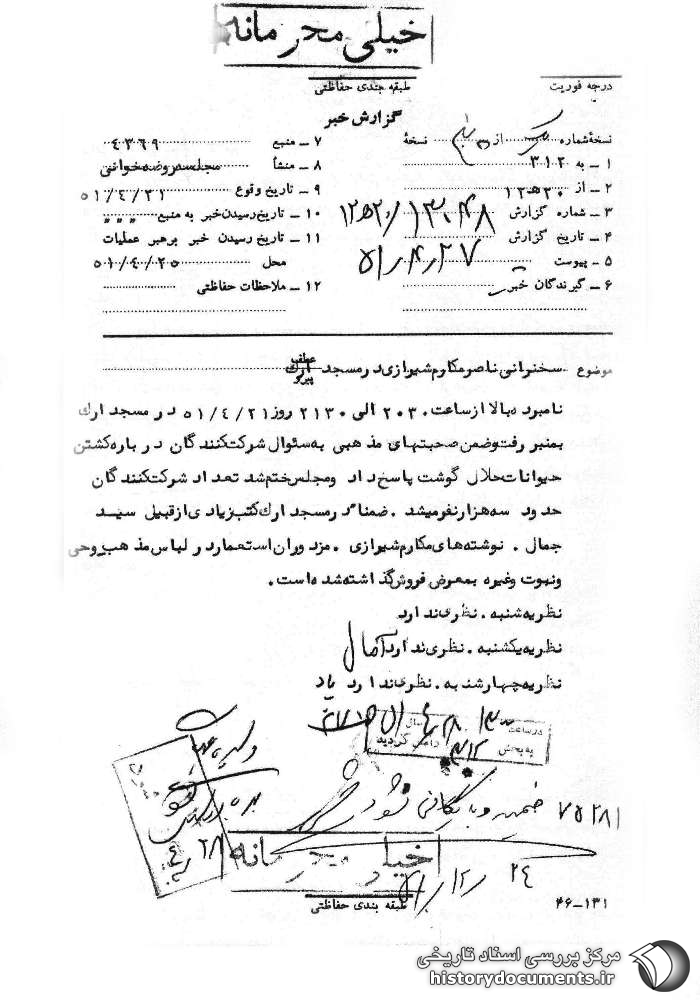 خیلی محرمانه
درجه فوریت
طبقه بندی حفاظتی
گزارش خبر
نسخهٔ شماره یک از نسخهٔ
۱ ـ به ۳۱۲
۲ ـ از ۲۰ هـ ۱۲
۳ ـ شماره گزارش ۱۳۰۴۸/ ۲۰ هـ ۱۲
۴ ـ تاریخ گزارش ۵۱/۴/۲۷
۵ ـ پیوست
۶ ـ گیرندگان خبر
۷ ـ منبع ۴۳۶۹
۸ ـ منشأ مجلس روضه‌خوانی
۹ ـ تاریخ وقوع ۵۱/۴/۲۱
۱۰ ـ تاریخ رسیدن خبر به منبع " " "
۱۱ ـ تاریخ رسیدن خبر برهبر عملیات
محل ۵۱/۴/۲۵
۱۲ ـ ملاحظات حفاظتی
موضوع ـ سخنرانی ناصر مکارم شیرازی در مسجد ارک
عطف
پیرو
نامبرده بالا از ساعت ۲۰۳۰ الی ۲۱۳۰ روز ۵۱/۴/۲۱ در مسجد ارک
بمنبر رفت وضمن صحبتهای مذهبی به سئوال شرکت کنندگان در باره کشتن
حیوانات حلال گوشت پاسخ داد ومجلس ختم شد تعداد شرکت کنندگان
حدود سه هزار نفر میشد . ضمنا در مسجد ارک کتب زیادی از قبیل سید
جمال . نوشته های مکارم شیرازی . مزدوران استعمار در لباس مذهب وحی
ونبوت وغیره بمعرض فروش گذاشته شده است .
نظریه شنبه . نظری ندارد
نظریه یکشنبه . نظری ندارد آمال
نظریه چهارشنبه . نظری ندارد
در ساعت ۱۳۰۰
به بخش ۳۱۲ واصل گردید
ضمیمه و بایگانی شود
۷۵۲۸۱
۲۸
خیلی محرمانه
۲۴
طبقه بندی حفاظتی
۴۶ـ۱۳۱
مرکز بررسی اسناد تاریخی
historydocuments.ir